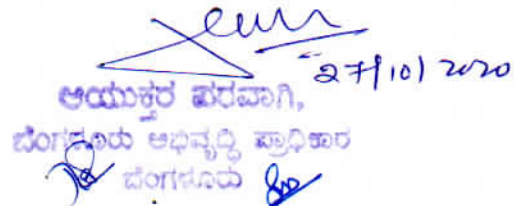 27/10/2020
ಆಯುಕ್ತರ ಪರವಾಗಿ,
ಬೆಂಗಳೂರು ಅಭಿವೃದ್ಧಿ ಪ್ರಾಧಿಕಾರ
ಬೆಂಗಳೂರು